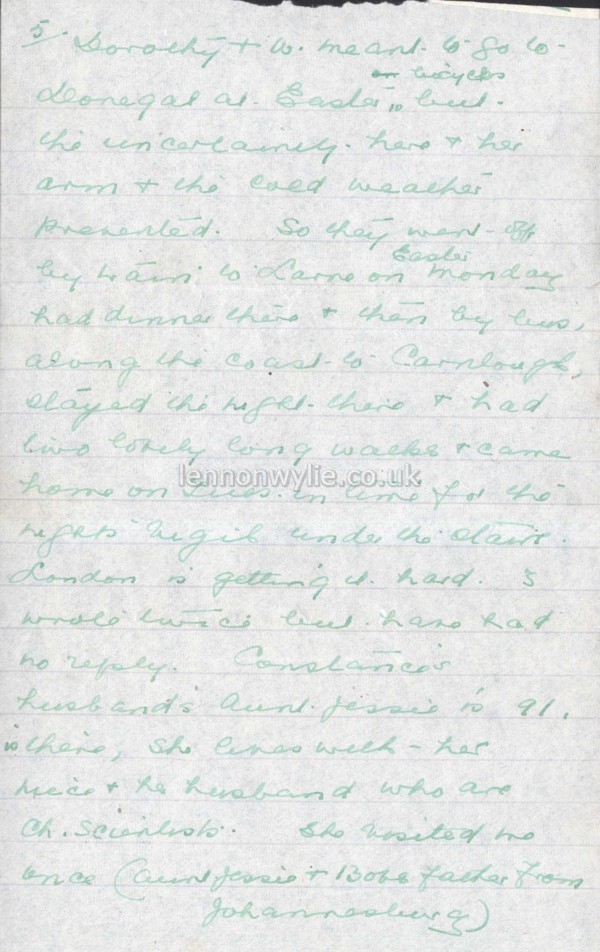 5/. Dorothy & W. meant to go to
on bicycles
Donegal at Easter, but
the uncertainty here & her
arm & the cold weather
prevented. So they went off
Easter
by train to Larne on Monday
had dinner there & then by bus,
along the coast to Carnlough,
stayed the night there & had
two lovely long walks & came
lennonwylie.co.uk
home on Tues. in time for the
night's vigil under the stairs.
London is getting it hard. I
wrote twice but have had
no reply. Constance's
husband's Aunt Jessie is 91,
is there, she lives with her
niece & her husband who are
Ch. Scientists. She visited me
once (Aunt Jessie & Bob's father from
Johannesburg)